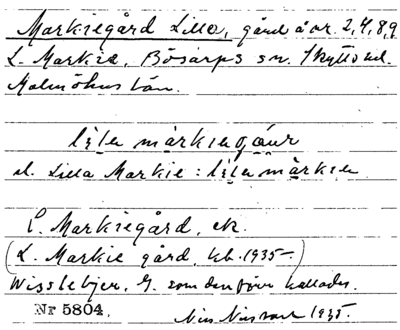 Markiegård Lilla, gård å nr. 2,4,8,9
L. Markie, Bösarps sn. Skytts hd.
Malmöhus län.
lilla markiegård
el. Lilla Markie: lilla markie
L. Markiegård, ek.
(L. Markie gård, kb. 1935)
Wisslebjer, G. som den förr kallades.
Nr 5804. Nils 1935.